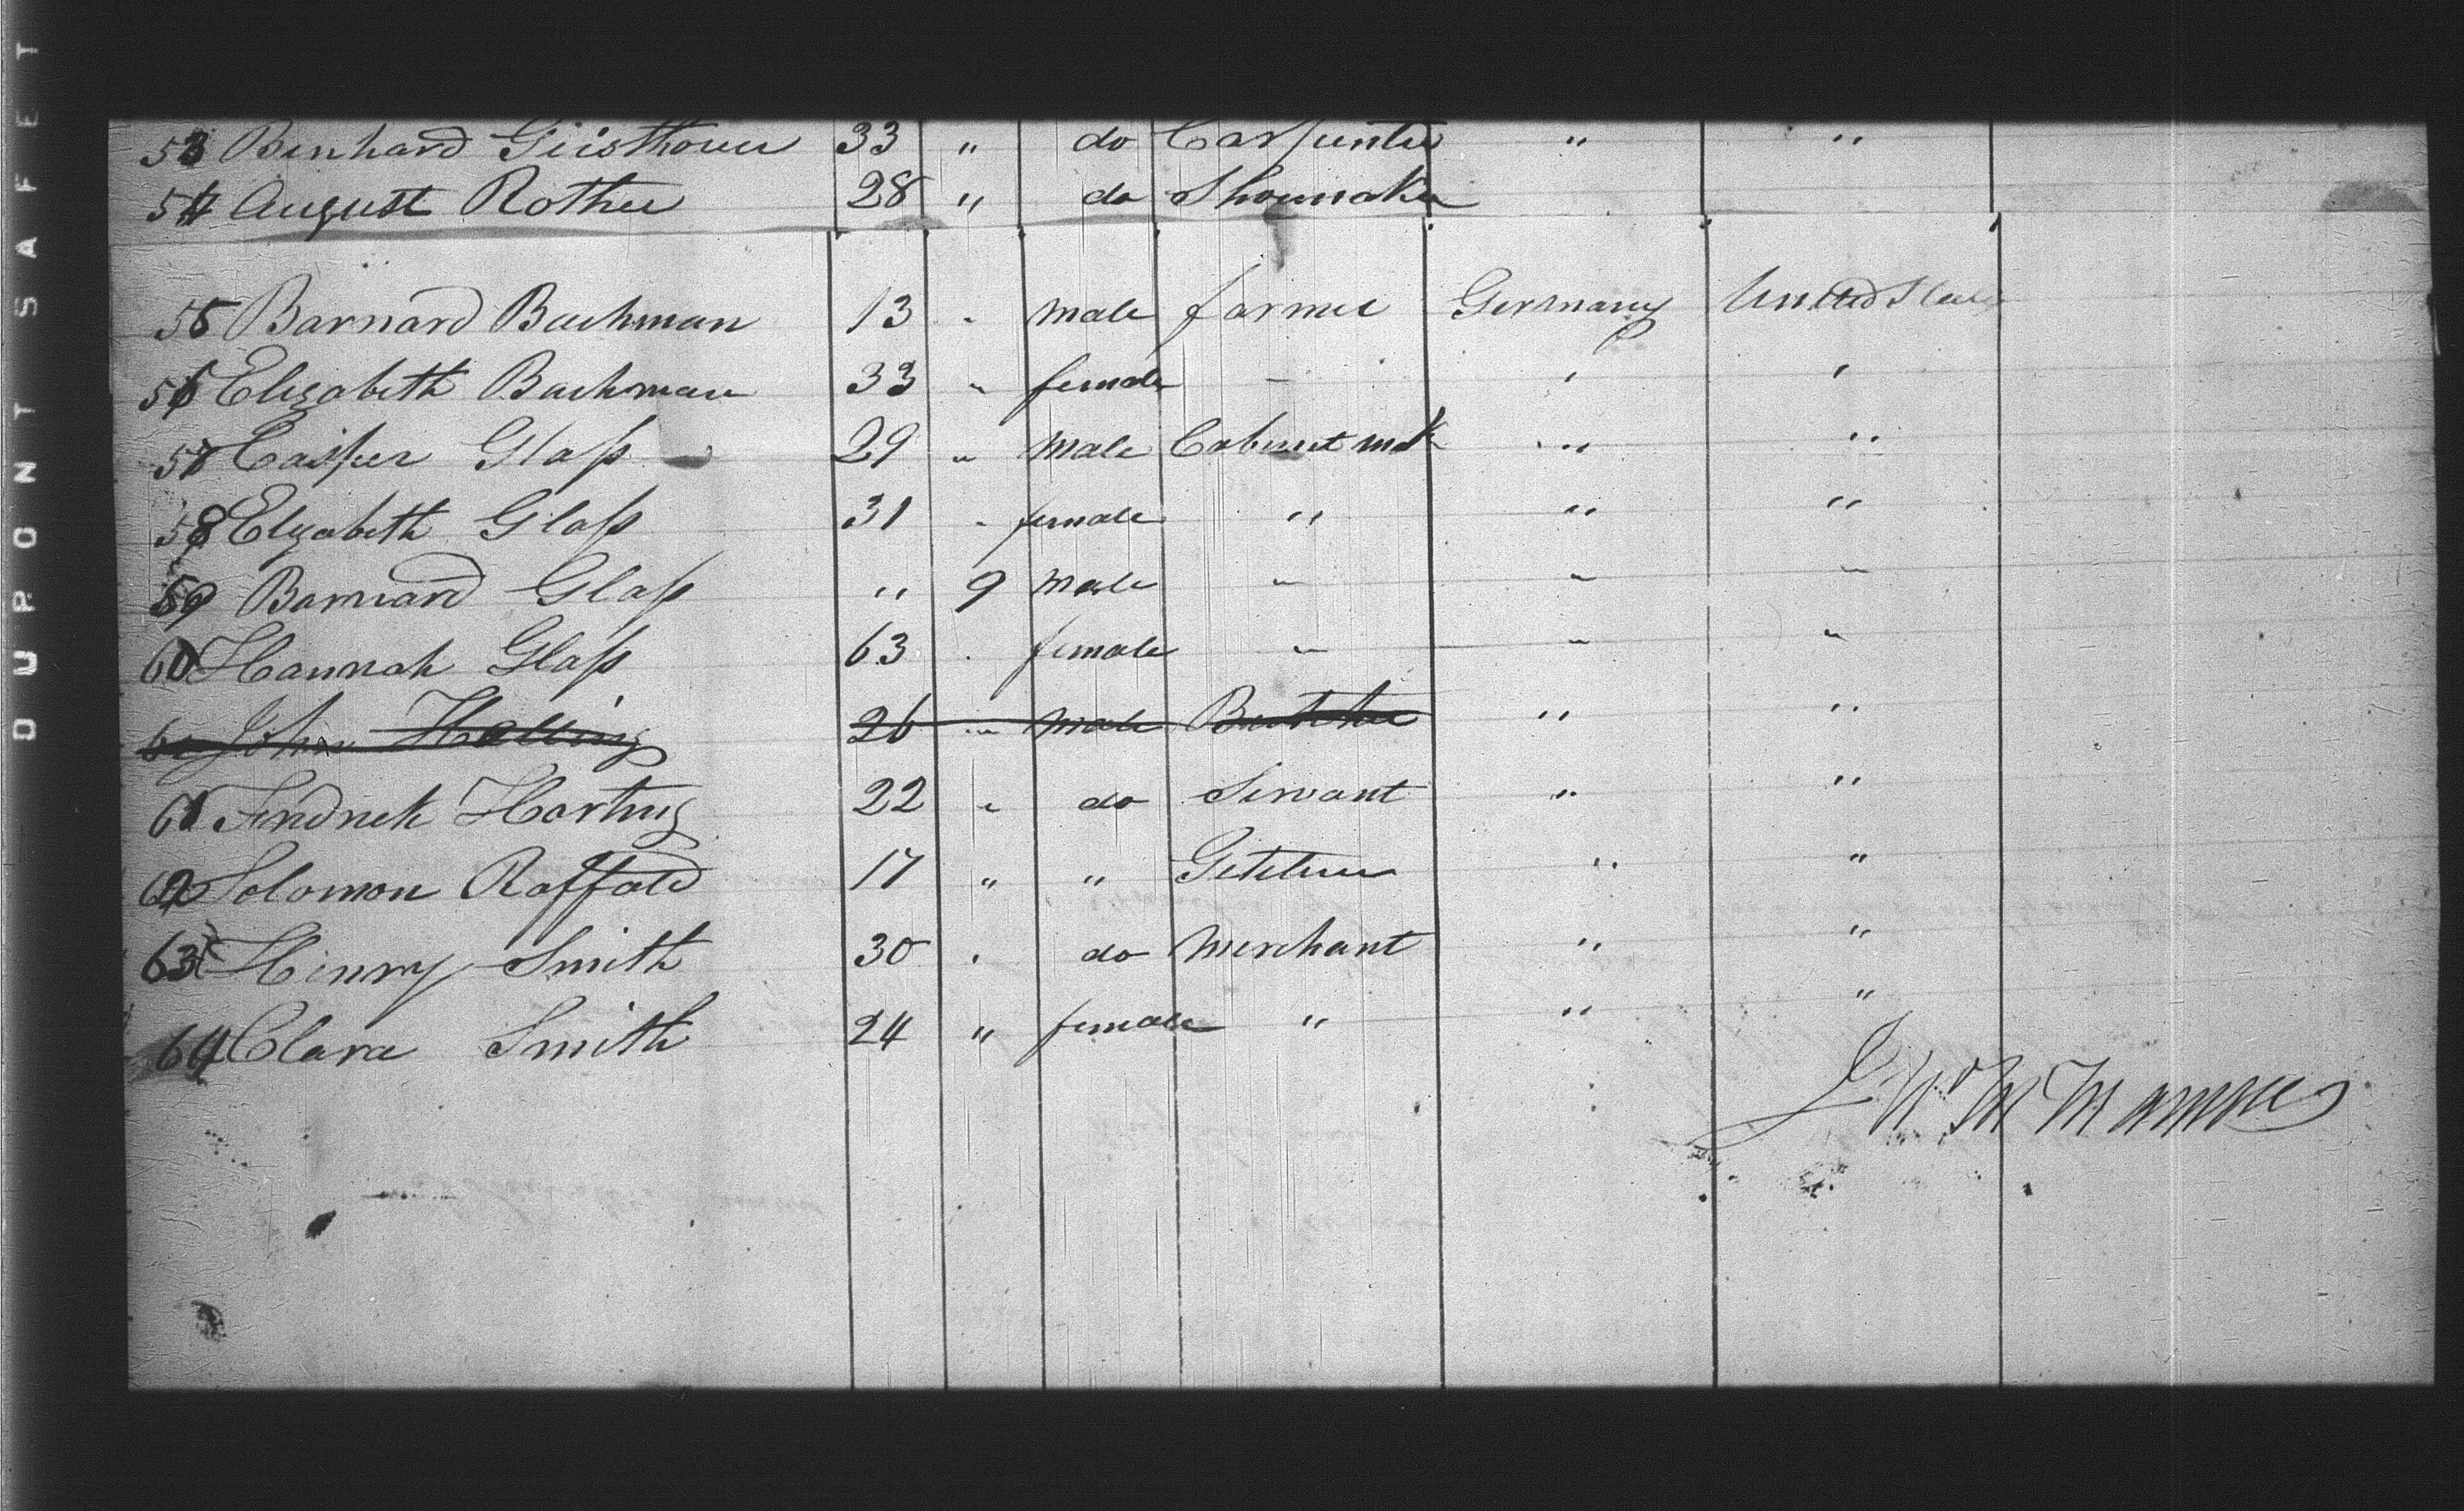 53 Benhard Giisthover 33 " do Carpenter " "
54 August Rother 28 " do Shoemaker
55 Barnard Bachman 13 " male farmer Germany United States
56 Elizabeth Bachman 33 " female - " "
57 Casper Glass 29 " male Cabinet mak " "
58 Elizabeth Glass 31 " female " " "
59 Barnard Glass " 9 male " " "
60 Hannah Glass 63 " female " " "
61 John Halling 26 " male Butcher " "
61 Fredrick Harting 22 " do Servant " "
62 Solomon Raffald 17 " " " "
63 Henry Smith 30 " do Merchant " "
64 Clara Smith 24 " female " " "
J W M Manners
DUPONT SAFET